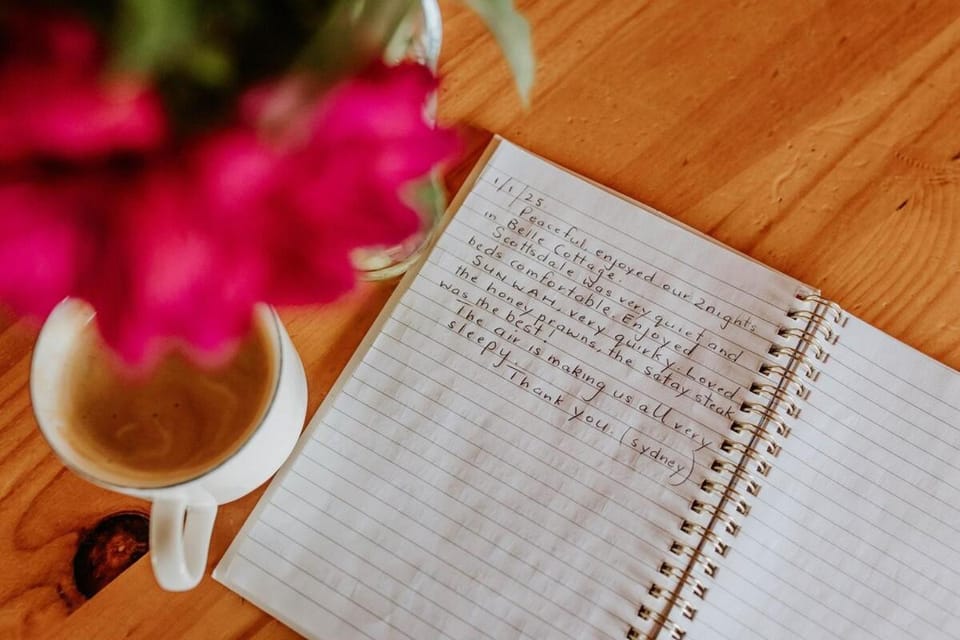 1/1/25
Peaceful, enjoyed our 2nights
in Belle Cottage.
Scottsdale was very quiet and
beds comfortable. Enjoyed
SUNWAH, very quirky. Loved
the honey prawns, the satay steak
was the best!
The air is making us all very
sleepy.
Thank you. (sydney)